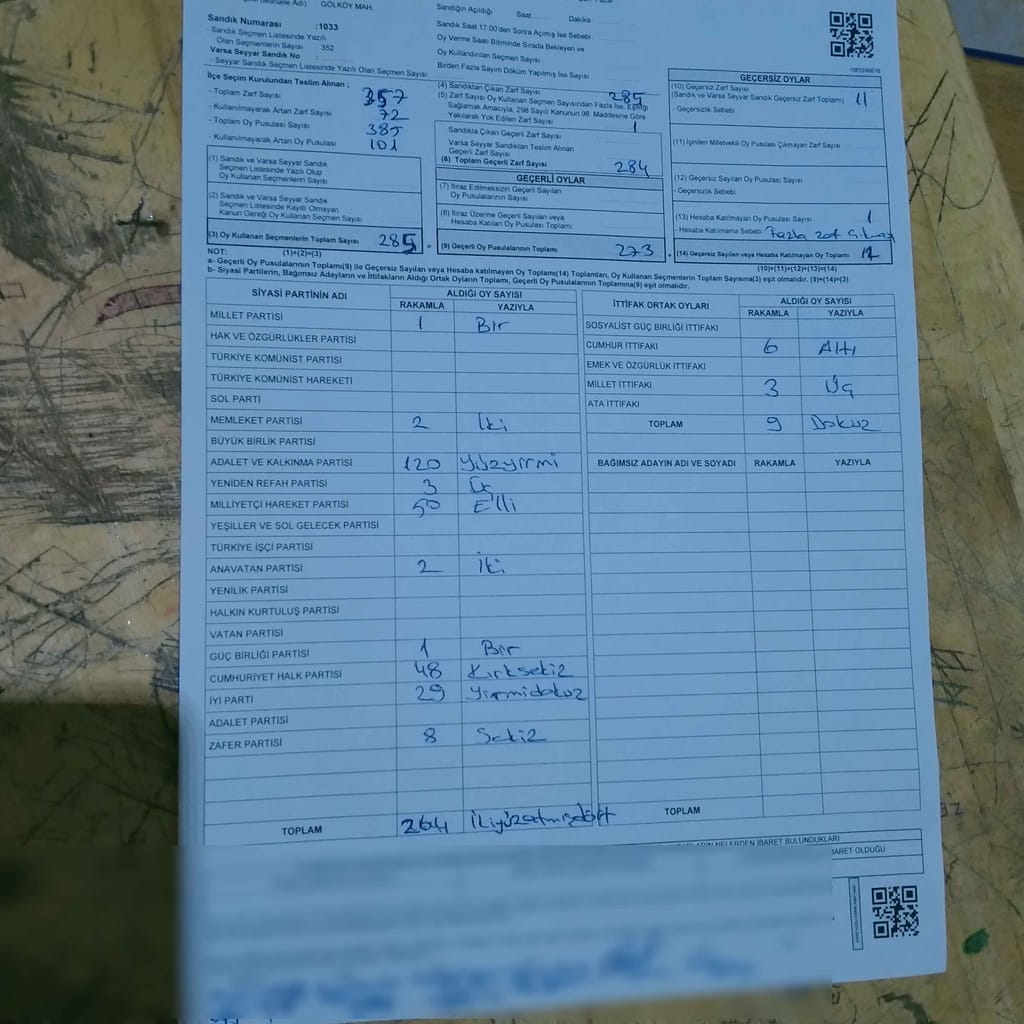 GÖLKÖY MAH.
Sandığın Açıldığı Saat Dakika
Sandık Numarası :1033
- Sandık Seçmen Listesinde Yazılı
Olan Seçmenlerin Sayısı 352
Varsa Seyyar Sandık No :
- Seyyar Sandık Listesinde Yazılı Olan Seçmen Sayısı
Sandık Saat 17:00'den Sonra Açımış İse Sebebi
Oy Verme Saati Bitiminde Sırada Bekleyen ve
Oy Kullandırılan Seçmen Sayısı
Birden Fazla Sayım Döküm Yapılmış İse Sayısı
İlçe Seçim Kurulundan Teslim Alınan :
- Toplam Zarf Sayısı 357
- Kullanılmayarak Artan Zarf Sayısı 72
- Toplam Oy Pusulası Sayısı 385
- Kullanılmayarak Artan Oy Pusulası 101
(1) Sandık ve Varsa Seyyar Sandık
Seçmen Listesinde Yazılı Olup
Oy Kullanan Seçmenlerin Sayısı
(2) Sandık ve Varsa Seyyar Sandık
Seçmen Listesinde Kayıtlı Olmayan
Kanun Gereği Oy Kullanan Seçmen Sayısı
(3) Oy Kullanan Seçmenlerin Toplam Sayısı 285 =
(1)+(2)=(3)
(4) Sandıktan Çıkan Zarf Sayısı 285
(5) Zarf Sayısı Oy Kullanan Seçmen Sayısından Fazla İse, Eşitliği
Sağlamak Amacıyla, 298 Sayılı Kanunun 98. Maddesine Göre
Yakılarak Yok Edilen Zarf Sayısı 1
Sandıkta Çıkan Geçerli Zarf Sayısı
Varsa Seyyar Sandıktan Teslim Alınan
Geçerli Zarf Sayısı
(6) Toplam Geçerli Zarf Sayısı 284
GEÇERLİ OYLAR
(7) İtiraz Edilmeksizin Geçerli Sayılan
Oy Pusulalarının Sayısı
(8) İtiraz Üzerine Geçerli Sayılan veya
Hesaba Katılan Oy Pusulası Toplamı
(9) Geçerli Oy Pusulalarının Toplamı 273 +
GEÇERSİZ OYLAR
(10) Geçersiz Zarf Sayısı
(Sandık ve Varsa Seyyar Sandık Geçersiz Zarf Toplamı) 11
- Geçersizlik Sebebi
(11) İçinden Milletvekili Oy Pusulası Çıkmayan Zarf Sayısı
(12) Geçersiz Sayılan Oy Pusulası Sayısı
- Geçersizlik Sebebi
(13) Hesaba Katılmayan Oy Pusulası Sayısı 1
- Hesaba Katılmama Sebebi Fazla zarf
(14) Geçersiz Sayılan veya Hesaba Katılmayan Oy Toplamı 12
(10)+(11)+(12)+(13)=(14)
NOT:
a- Geçerli Oy Pusulalarının Toplamı(9) ile Geçersiz Sayılan veya Hesaba katılmayan Oy Toplamı(14) Toplamları, Oy Kullanan Seçmenlerin Toplam Sayısına(3) eşit olmalıdır. (9)+(14)=(3)
b- Siyasi Partilerin, Bağımsız Adayların ve İttifakların Aldığı Ortak Oyların Toplamı, Geçerli Oy Pusulalarının Toplamına(9) eşit olmalıdır.
SİYASİ PARTİNİN ADI ALDIĞI OY SAYISI
RAKAMLA YAZIYLA
MİLLET PARTİSİ 1 Bir
HAK VE ÖZGÜRLÜKLER PARTİSİ
TÜRKİYE KOMÜNİST PARTİSİ
TÜRKİYE KOMÜNİST HAREKETİ
SOL PARTİ
MEMLEKET PARTİSİ 2 İki
BÜYÜK BİRLİK PARTİSİ
ADALET VE KALKINMA PARTİSİ 120 Yüzyirmi
YENİDEN REFAH PARTİSİ 3 Üç
MİLLİYETÇİ HAREKET PARTİSİ 50 Elli
YEŞİLLER VE SOL GELECEK PARTİSİ
TÜRKİYE İŞÇİ PARTİSİ
ANAVATAN PARTİSİ 2 İki
YENİLİK PARTİSİ
HALKIN KURTULUŞ PARTİSİ
VATAN PARTİSİ
GÜÇ BİRLİĞİ PARTİSİ 1 Bir
CUMHURİYET HALK PARTİSİ 48 Kırksekiz
İYİ PARTİ 29 Yirmidokuz
ADALET PARTİSİ
ZAFER PARTİSİ 8 Sekiz
TOPLAM 264 İkiyüzatmışdört
İTTİFAK ORTAK OYLARI ALDIĞI OY SAYISI
RAKAMLA YAZIYLA
SOSYALİST GÜÇ BİRLİĞİ İTTİFAKI
CUMHUR İTTİFAKI 6 Altı
EMEK VE ÖZGÜRLÜK İTTİFAKI
MİLLET İTTİFAKI 3 Üç
ATA İTTİFAKI
TOPLAM 9 Dokuz
BAĞIMSIZ ADAYIN ADI VE SOYADI RAKAMLA YAZIYLA
TOPLAM
NELERDEN İBARET BULUNDUKLARI
OLDUĞU